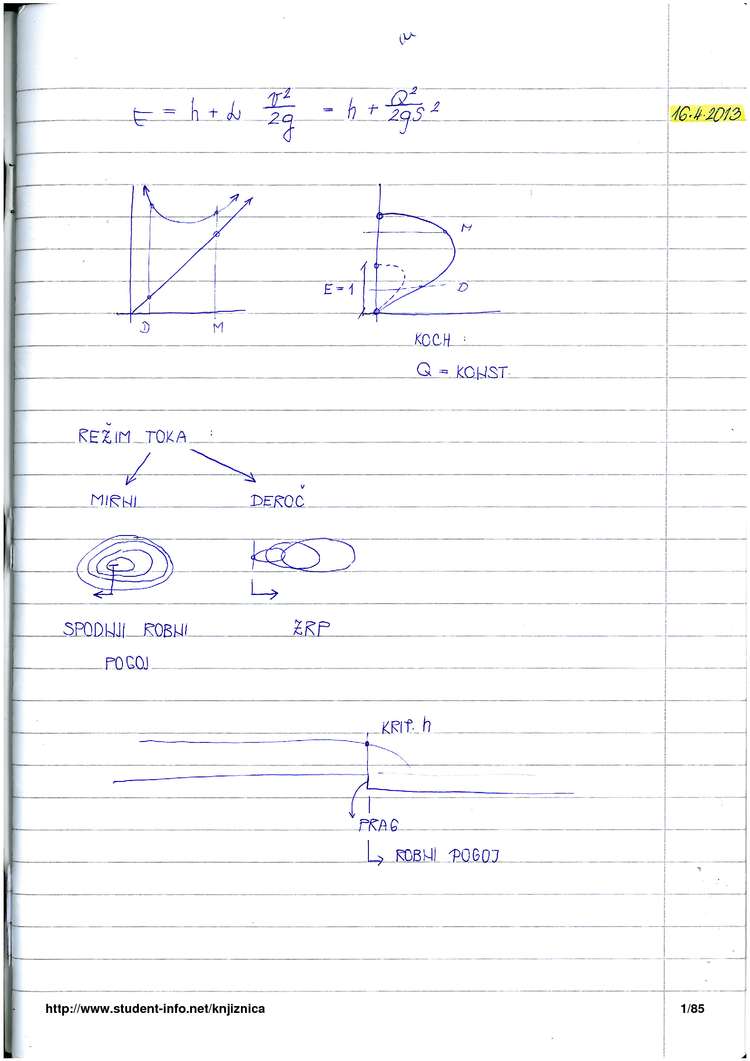 E = h + α v²/2g = h + Q²/2gS²
16.4.2013
M
E = 1
D
D M
KOCH :
Q = KONST.
REŽIM TOKA :
MIRNI DEROČ
SPODNJI ROBNI ZRP
POGOJ
KRIT. h
PRAG
ROBNI POGOJ
http://www.student-info.net/knjiznica 1/85